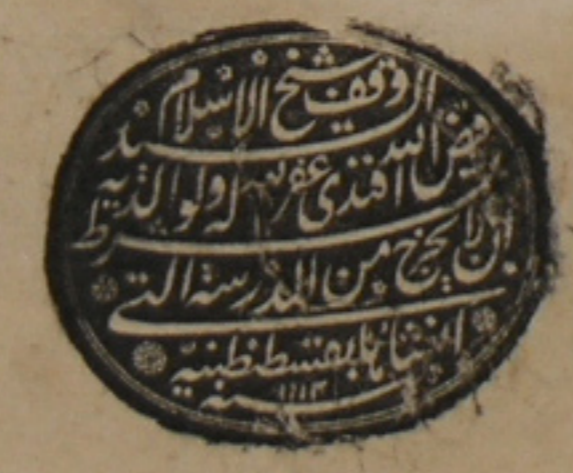 وقف شيخ الاسلام السيد
فيض الله افندى غفر الله له ولوالديه بشرط
ان لا يخرج من المدرسة التى
انشاها بقسطنطنية
سنة ١١١٣